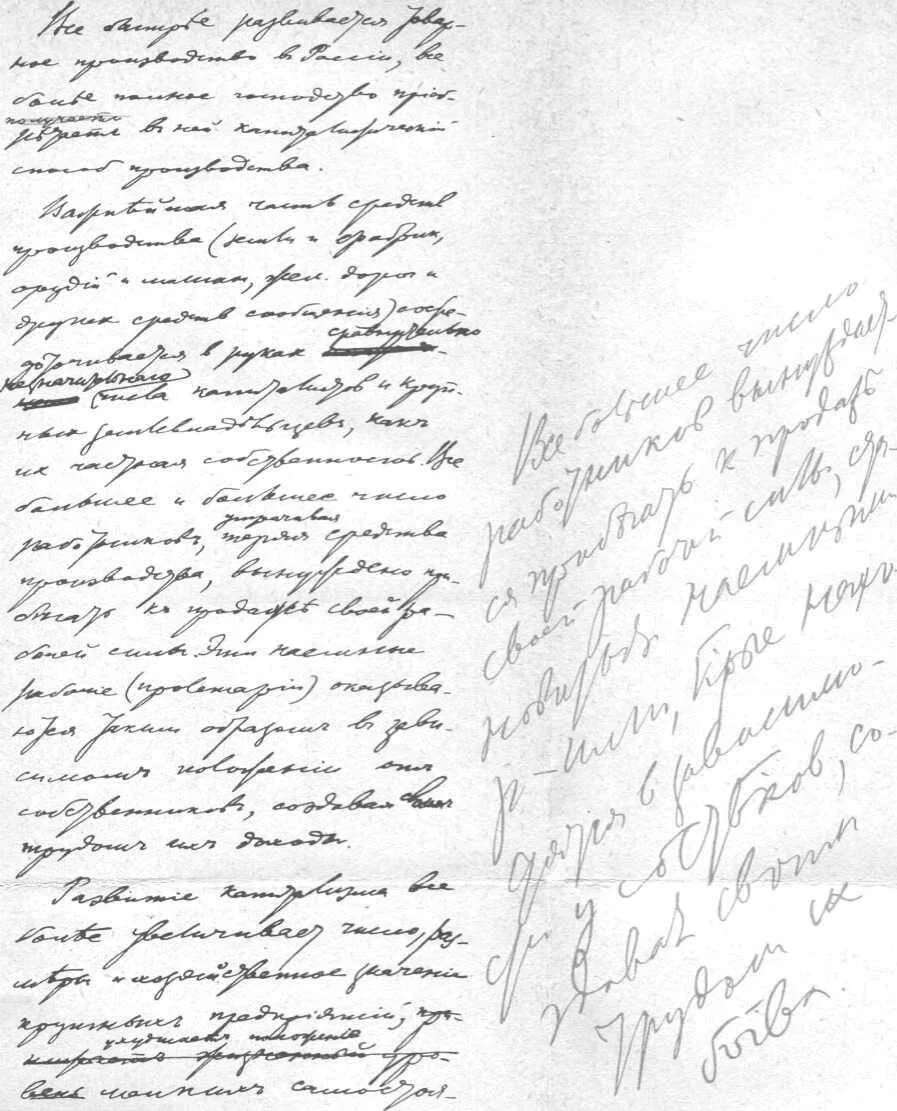 Все быстрѣе развивается товар-
ное производство в Россіи, все
болѣе полное господство пріоб-
получаетъ
рѣтаетъ в ней капиталистическій
способ производства.
Важнѣйшая часть средств
производства (земли и фабрик,
орудій и машин, жел. дорог и
других средств сообщенія) сосре-
доточивается в руках сравнительно
незначительнаго
числа капиталистов и круп-
ных землевладѣльцев, какъ
их частная собственность. Все
большее и большее число
утрачивая
работниковъ, теряя средства
производства, вынуждено при-
бѣгать къ продажѣ своей ра-
бочей силы. Эти наемные
рабочіе (пролетаріи) оказыва-
ются таким образомъ в зави-
симомъ положеніи отъ
собственниковъ, создавая своимъ
трудомъ ихъ доходы.
Развитіе капитализма все
болѣе увеличивает число, раз-
мѣры и хозяйственное значеніе
крупныхъ предпріятій,
ухудшаетъ положеніе
уро-
вень мелкихъ самостоя-
Все большее число
работников вынуждает-
ся прибѣгать к продажѣ
своей рабочей силы, ста-
новиться наемными
р-чими, кртые нахо-
дятся в зависимо-
сти у собств-ков, со-
здават своим
трудом их
бог-ва.